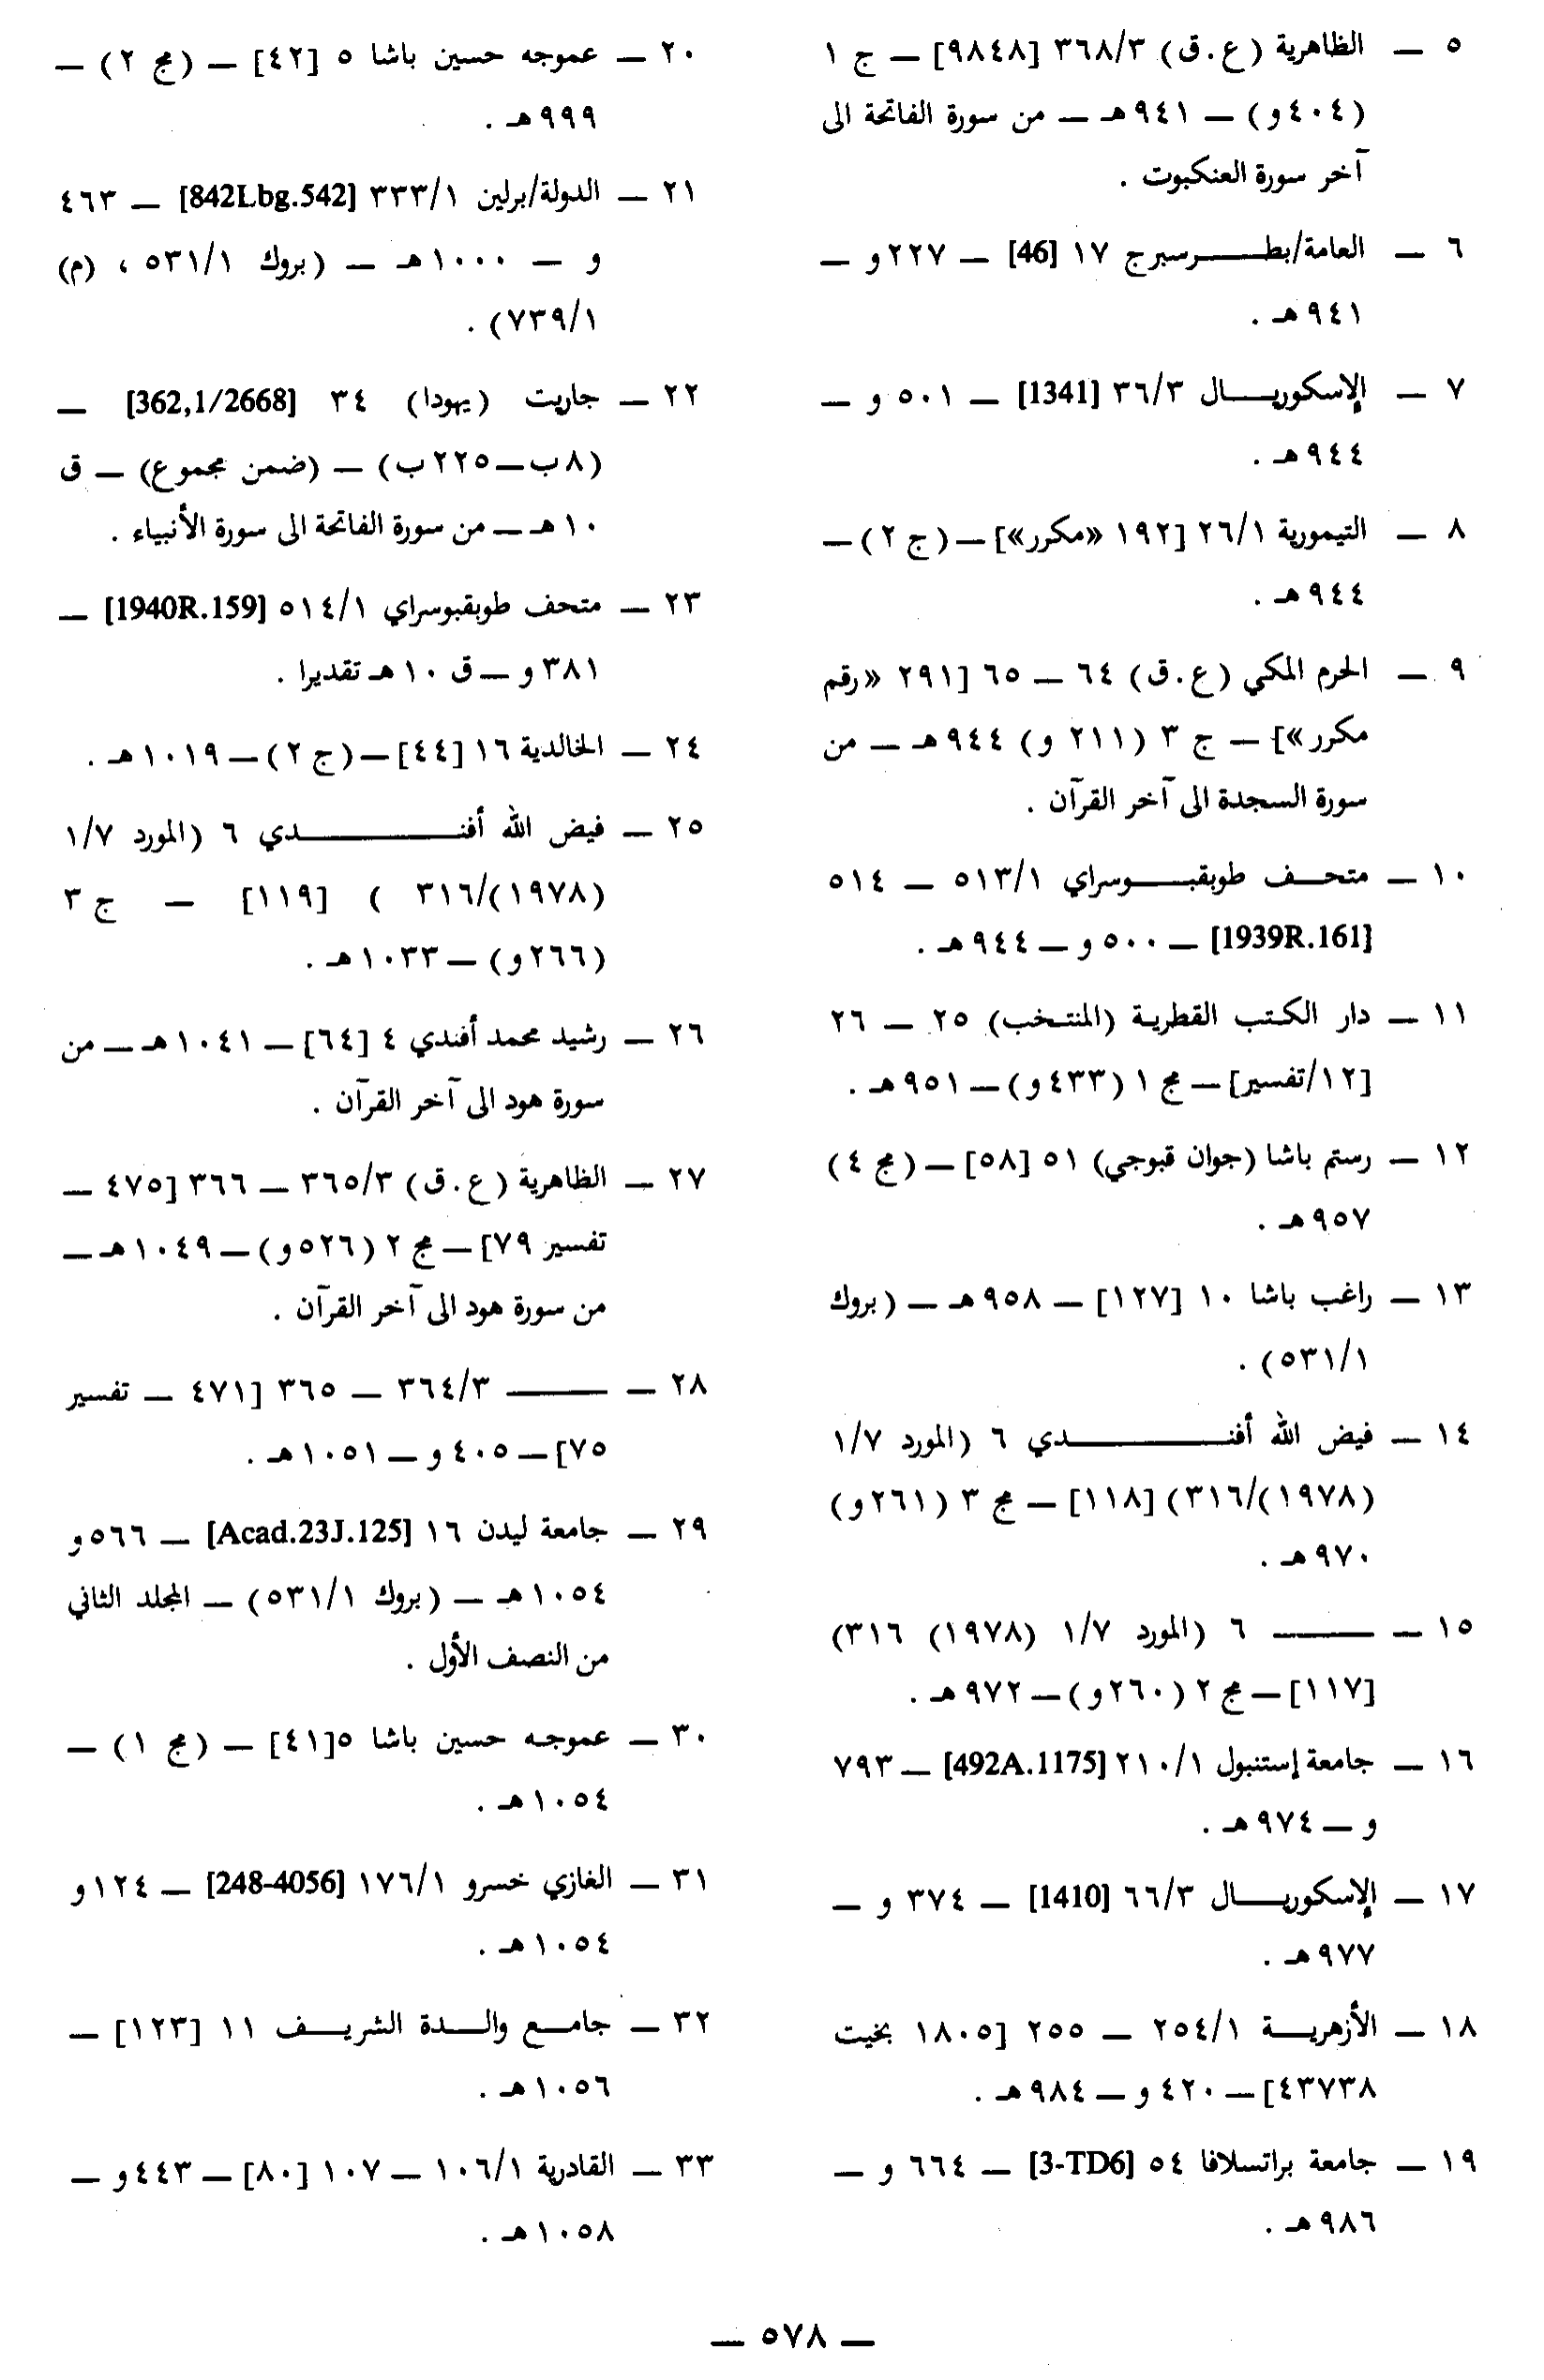 ٥ — الظاهرية (ع.ق) ٣٦٨/٣ [٩٨٤٨] — ج ١
(٤٠٤و) — ٩٤١هـ — من سورة الفاتحة الى
آخر سورة العنكبوت .
٦ — العامة/بطــرسبرج ١٧ [46] — ٢٢٧و —
٩٤١هـ .
٧ — الإسكوريــال ٣٦/٣ [1341] — ٥٠١ و —
٩٤٤هـ .
٨ — التيمورية ٢٦/١ [١٩٢ «مكرر»] — (ج ٢) —
٩٤٤هـ .
٩ — الحرم المكي (ع.ق) ٦٤ — ٦٥ [٢٩١ «رقم
مكرر»] — ج ٣ (٢١١ و) ٩٤٤هـ — من
سورة السجدة الى آخر القرآن .
١٠ — متحــف طوبقبــوسراي ٥١٣/١ — ٥١٤
[1939R.161] — ٥٠٠ و — ٩٤٤هـ .
١١ — دار الكتب القطرية (المنتخب) ٢٥ — ٢٦
[١٢/تفسير] — مج ١ (٤٣٣و) — ٩٥١هـ .
١٢ — رستم باشا (جوان قبوجي) ٥١ [٥٨] — (مج ٤)
٩٥٧هـ .
١٣ — راغب باشا ١٠ [١٢٧] — ٩٥٨هـ — (بروك
٥٣١/١) .
١٤ — فيض الله أفنــــدي ٦ (المورد ١/٧
(١٩٧٨)/٣١٦) [١١٨] — مج ٣ (٢٦١و)
٩٧٠هـ .
١٥ — ——— ٦ (المورد ١/٧ (١٩٧٨) ٣١٦)
[١١٧] — مج ٢ (٢٦٠و) — ٩٧٢هـ .
١٦ — جامعة إستنبول ٢١٠/١ [492A.1175] — ٧٩٣
و — ٩٧٤هـ .
١٧ — الإسكوريــال ٦٦/٣ [1410] — ٣٧٤ و —
٩٧٧هـ .
١٨ — الأزهريــة ٢٥٤/١ — ٢٥٥ [١٨٠٥ بخيت
٤٣٧٣٨] — ٤٢٠ و — ٩٨٤هـ .
١٩ — جامعة براتسلافا ٥٤ [3-TD6] — ٦٦٤ و —
٩٨٦هـ .
٢٠ — عموجه حسين باشا ٥ [٤٢] — (مج ٢) —
٩٩٩هـ .
٢١ — الدولة/برلين ٣٣٣/١ [842Lbg.542] — ٤٦٣
و — ١٠٠٠هـ — (بروك ٥٣١/١ ، (م)
٧٣٩/١) .
٢٢ — جاريت (يهودا) ٣٤ [362,1/2668] —
(٨ب—٢٢٥ب) — (ضمن مجموع) — ق
١٠هـ — من سورة الفاتحة الى سورة الأنبياء .
٢٣ — متحف طوبقبوسراي ٥١٤/١ [1940R.159] —
٣٨١ و — ق ١٠هـ تقديرا .
٢٤ — الخالدية ١٦ [٤٤] — (ج ٢) — ١٠١٩هـ .
٢٥ — فيض الله أفنــــدي ٦ (المورد ١/٧
(١٩٧٨)/٣١٦ ) [١١٩] — ج ٣
(٢٦٦و) — ١٠٣٣هـ .
٢٦ — رشيد محمد أفندي ٤ [٦٤] — ١٠٤١هـ — من
سورة هود الى آخر القرآن .
٢٧ — الظاهرية (ع.ق) ٣٦٥/٣ — ٣٦٦ [٤٧٥ —
تفسير ٧٩] — مج ٢ (٥٢٦و) — ١٠٤٩هـ —
من سورة هود الى آخر القرآن .
٢٨ — ——— ٣٦٤/٣ — ٣٦٥ [٤٧١ — تفسير
٧٥] — ٤٠٥ و — ١٠٥١هـ .
٢٩ — جامعة ليدن ١٦ [Acad.23J.125] — ٥٦٦و
١٠٥٤هـ — (بروك ٥٣١/١) — المجلد الثاني
من النصف الأول .
٣٠ — عموجه حسين باشا ٥[٤١] — (مج ١) —
١٠٥٤هـ .
٣١ — الغازي خسرو ١٧٦/١ [248-4056] — ١٢٤و
١٠٥٤هـ .
٣٢ — جامــع والــدة الشريــف ١١ [١٢٣] —
١٠٥٦هـ .
٣٣ — القادرية ١٠٦/١ — ١٠٧ [٨٠] — ٤٤٣و —
١٠٥٨هـ .
— ٥٧٨ —